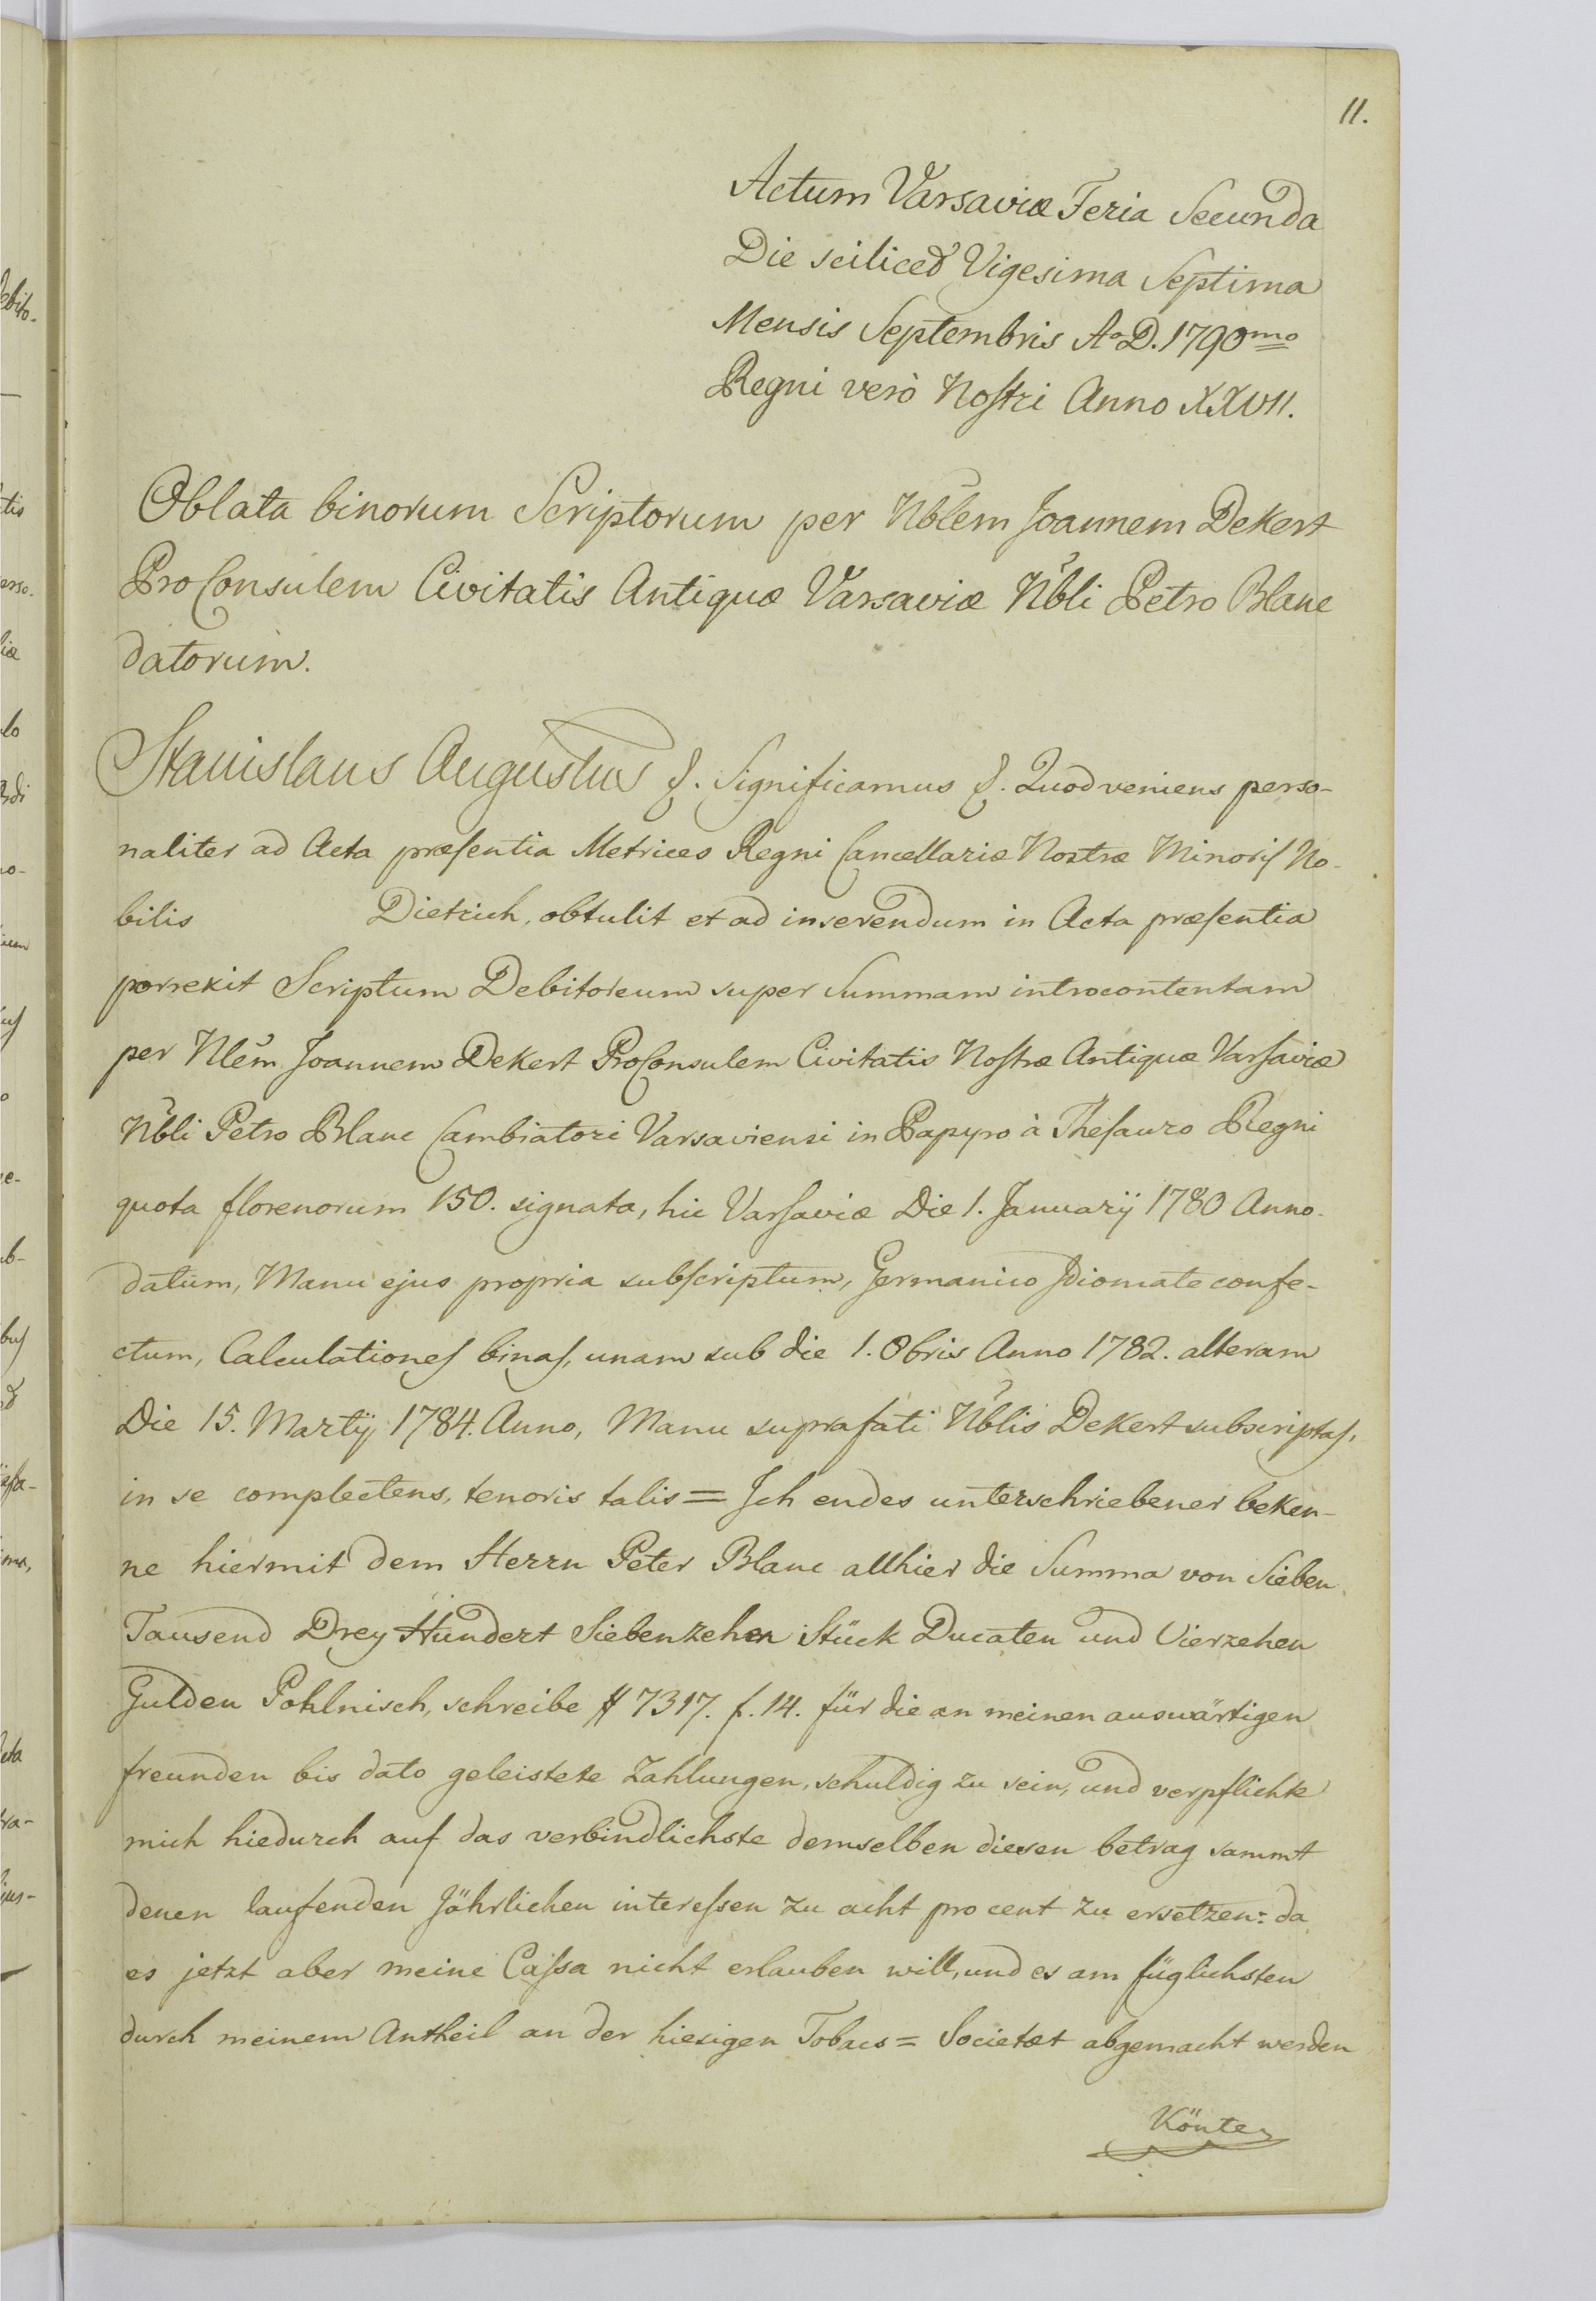 11.
Actum Varsaviæ Feria Secunda
Die scilicet Vigesima Septima
Mensis Septembris Ao D. 1790mo
Regni verò Nostri Anno XXVII.
Oblata binorum Scriptorum per Nblem Joannem Dekert
ProConsulem Civitatis Antiquæ Varsaviæ Nbli Petro Blanc
datorum.
Stanislaus Augustus &. Significamus &. Quod veniens perso-
naliter ad Acta præsentia Metrices Regni Cancellariæ Nostræ Minoris No-
bilis Dietrich, obtulit et ad inserendum in Acta præsentia
porrexit Scriptum Debitoreum super Summam introcontentam
per Nlem Joannem Dekert ProConsulem Civitatis Nostræ Antiquæ Varsaviæ
Nbli Petro Blanc Cambiatori Varsaviensi in Papyro à Thesauro Regni
quota florenorum 150. signata, hic Varsaviæ Die 1. Januarij 1780 Anno
datum, Manu ejus propria subscriptum, Germanico Idiomate confe-
ctum, Calculationes binas, unam sub die 1. 8bris Anno 1782. alteram
Die 15. Martij 1784. Anno, Manu suprafati Nblis Dekert subscriptas,
in se complectens, tenoris talis = Ich endes unterschriebener beken-
ne hiermit dem Herrn Peter Blanc allhier die Summa von Sieben
Tausend Drey Hundert Siebenzehen Stück Ducaten und Vierzehen
Gulden Pohlnisch, schreibe # 7317. f. 14. für die an meinen auswärtigen
freunden bis dato geleistete Zahlungen, schuldig zu sein, und verpflichte
mich hiedurch auf das verbindlichste demselben diesen betrag sammt
denen laufenden Jährlichen interessen zu acht pro cent zu ersetzen: da
es jetzt aber meine Cassa nicht erlauben will, und es am füglichsten
durch meinem Antheil an der hiesigen Tobacs = Societæt abgemacht werden
Könte